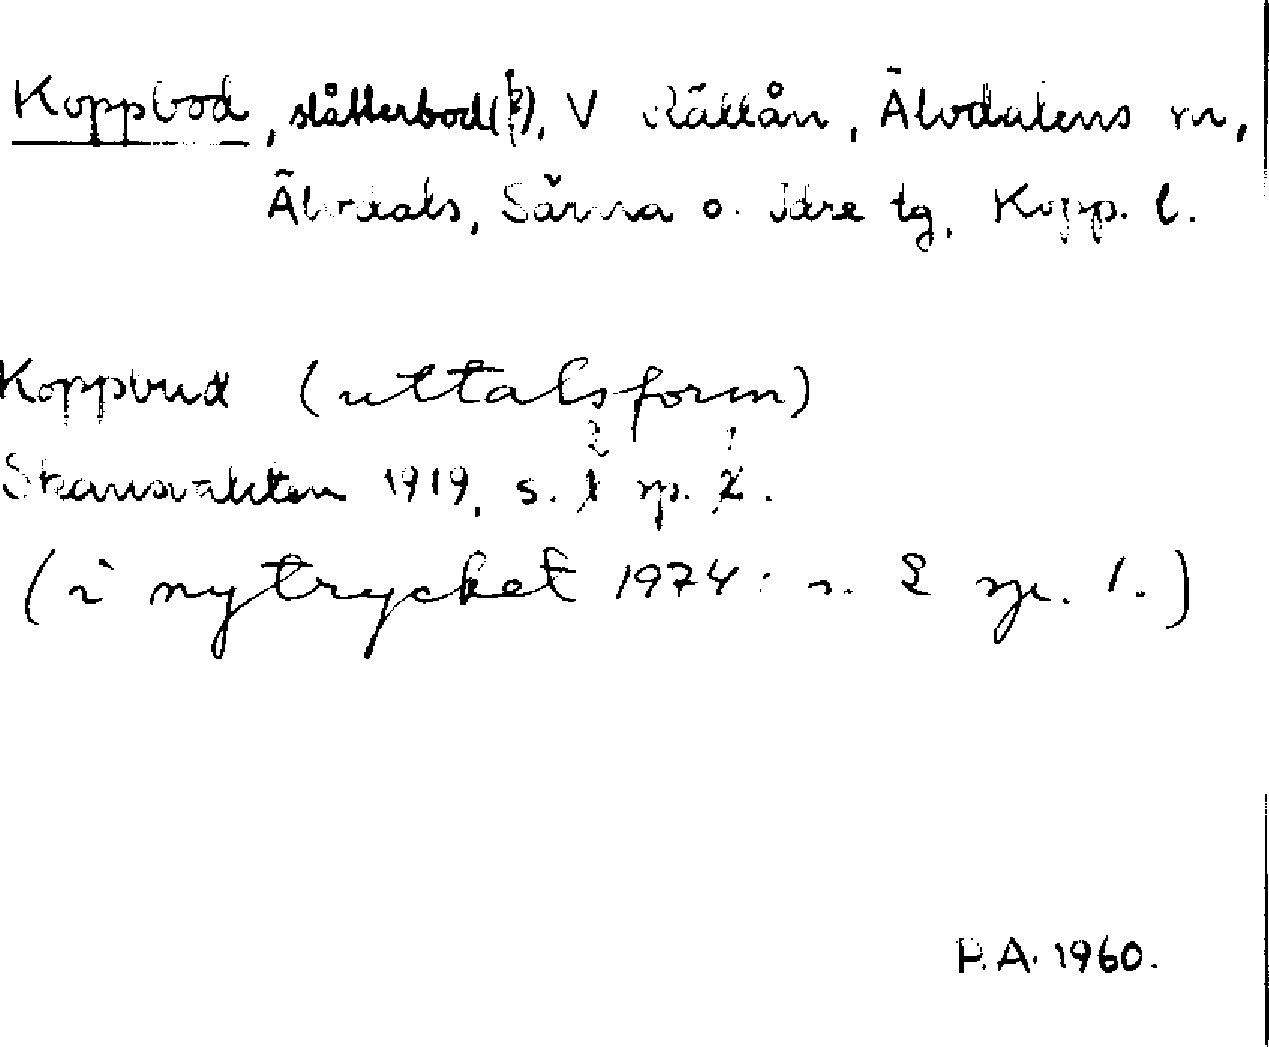 Koppbod, slåtterbod(?), V Källån, Älvdalens sn,
Älvdals, Särna o. Idre tg, Kopp. l.
Koppbud (uttalsform)
2 1
Skansvakten 1919, s. 1 sp. 2.
(i nytrycket 1974: s. 2 sp. 1.)
P.A. 1960.